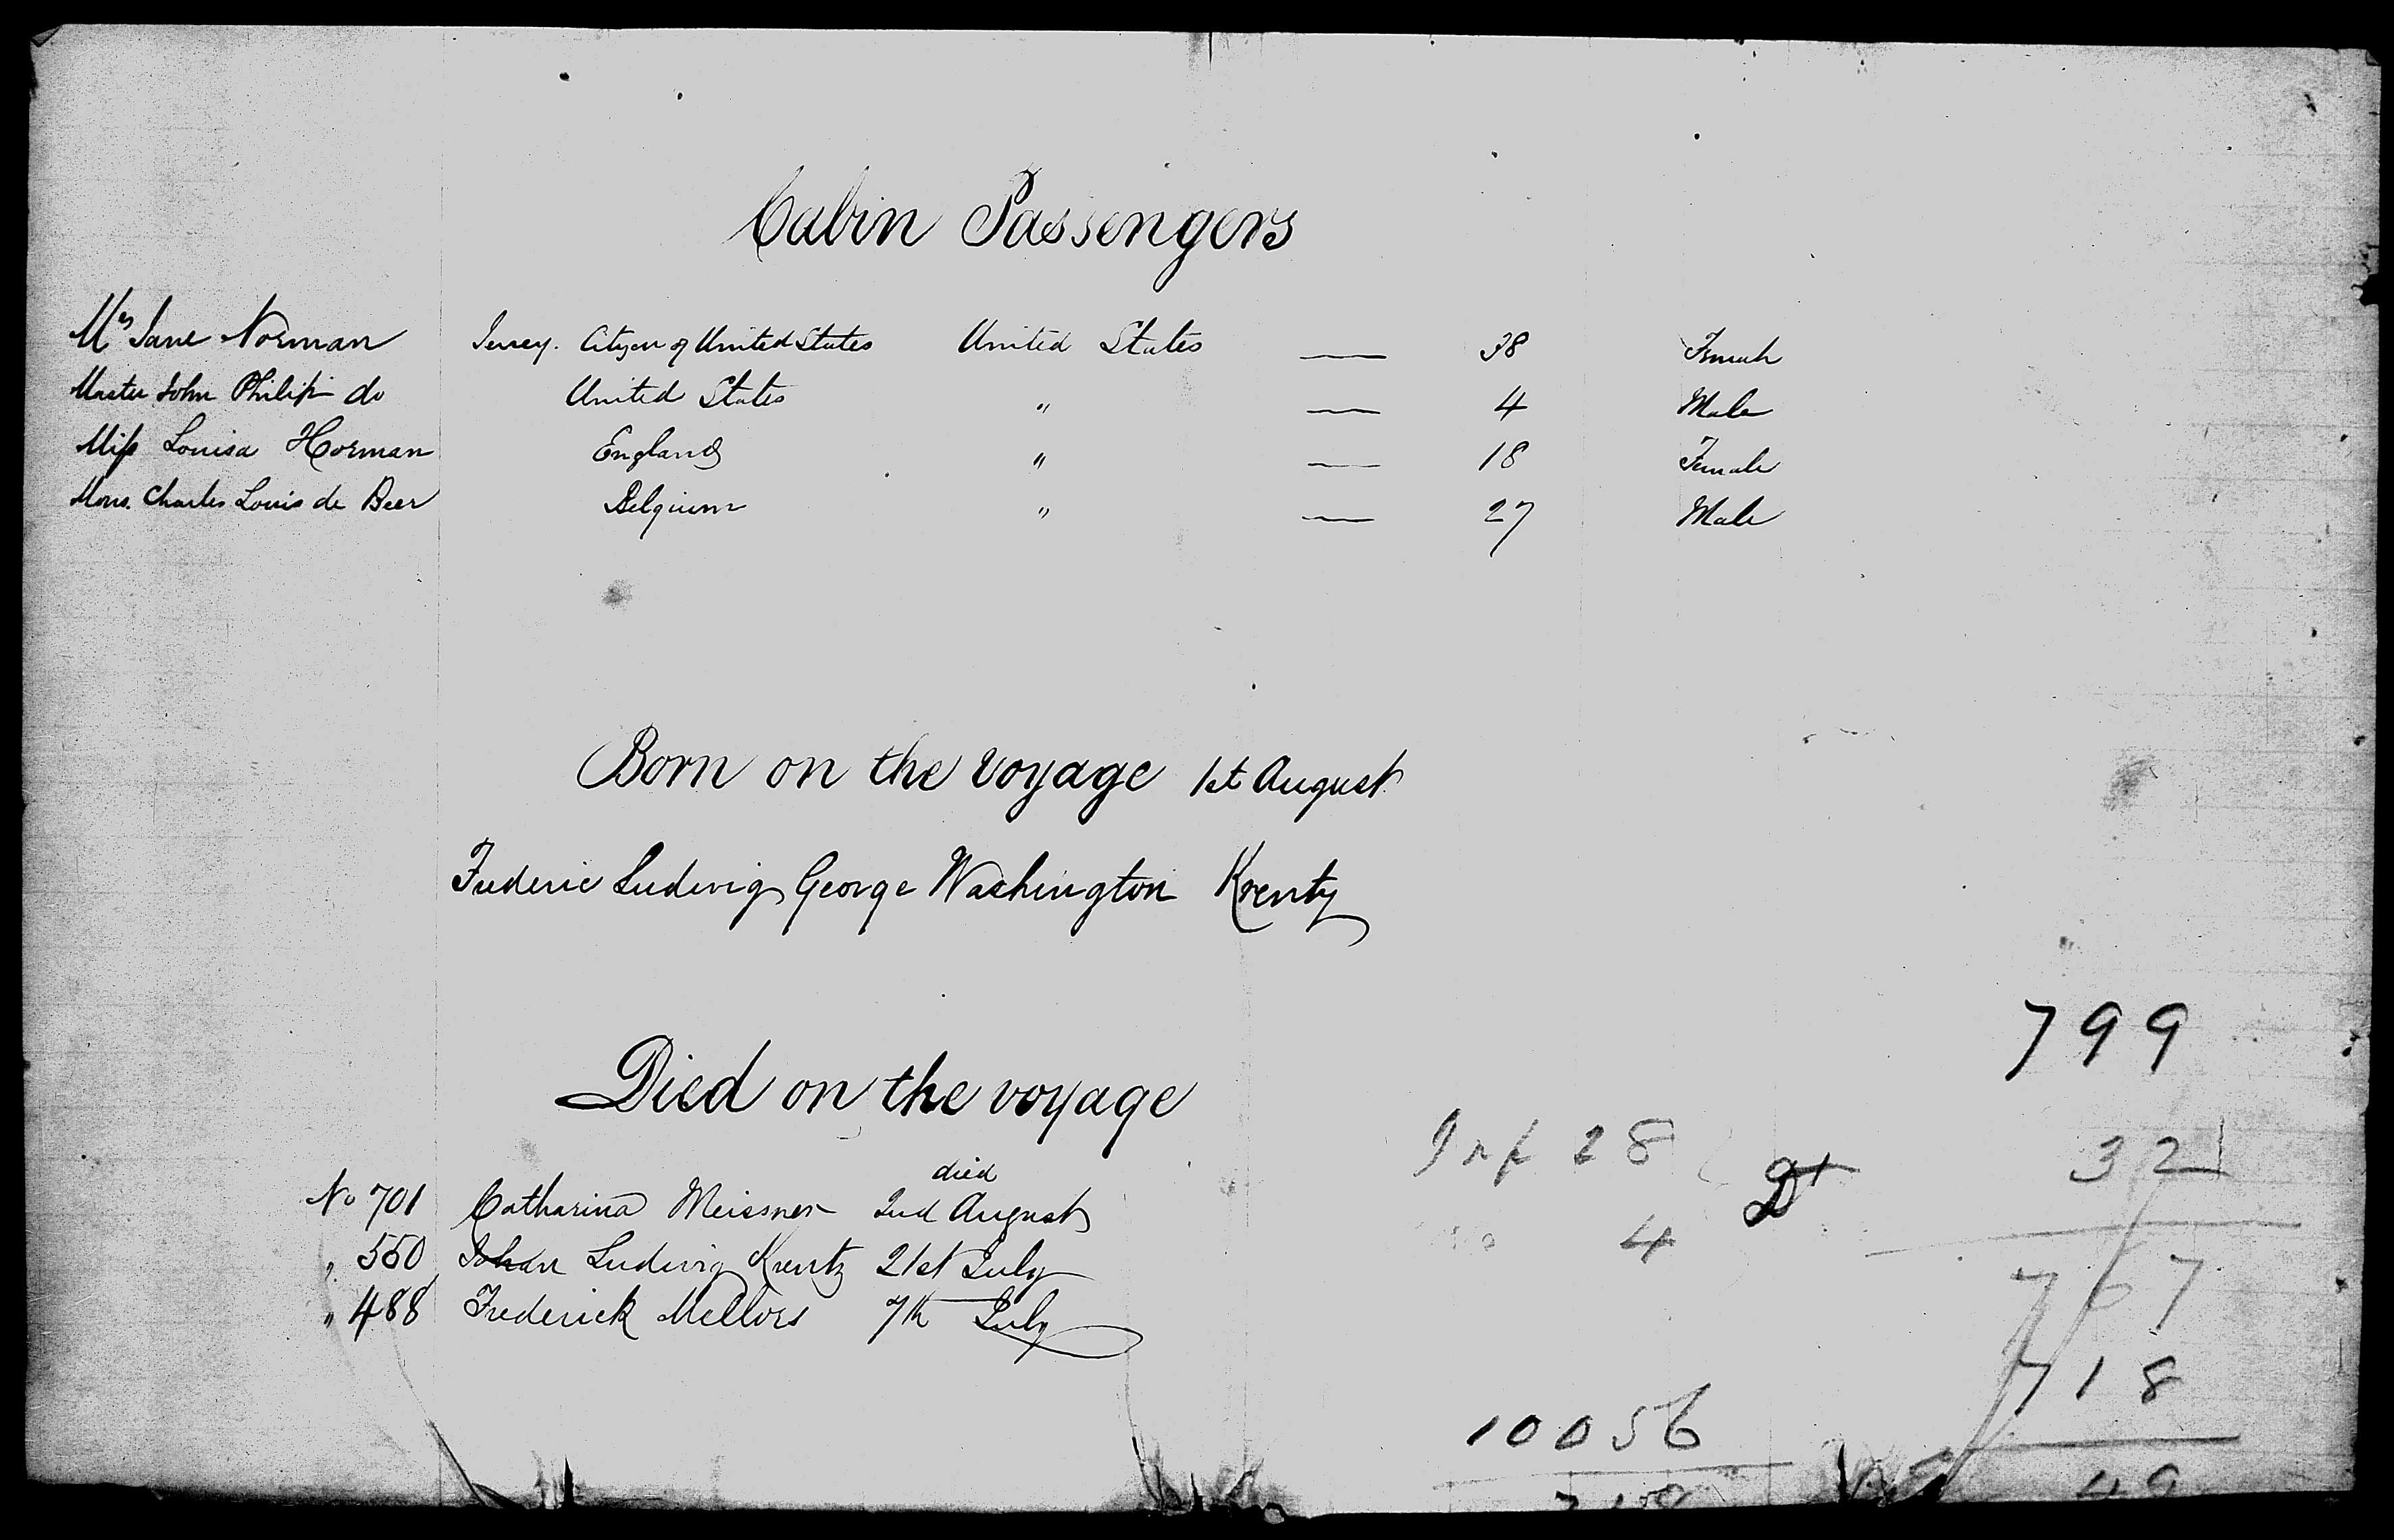 Cabin Passengers
Mrs Jane Norman Jersey. Citizen of United States United States — 38 Female
Master John Philip do United States " — 4 Male
Miss Louisa Horman England " — 18 Female
Mons. Charles Louis de Beer Belgium " — 27 Male
Born on the voyage 1st August
Frederic Ludwig George Washington Krentz
799
Died on the voyage
Inf 28 32
died
No 701 Catharina Meissner 2nd August
4
" 550 Johan Ludwig Krentz 21st July
767
" 488 Frederick Mellors 7th July
718
10056
49